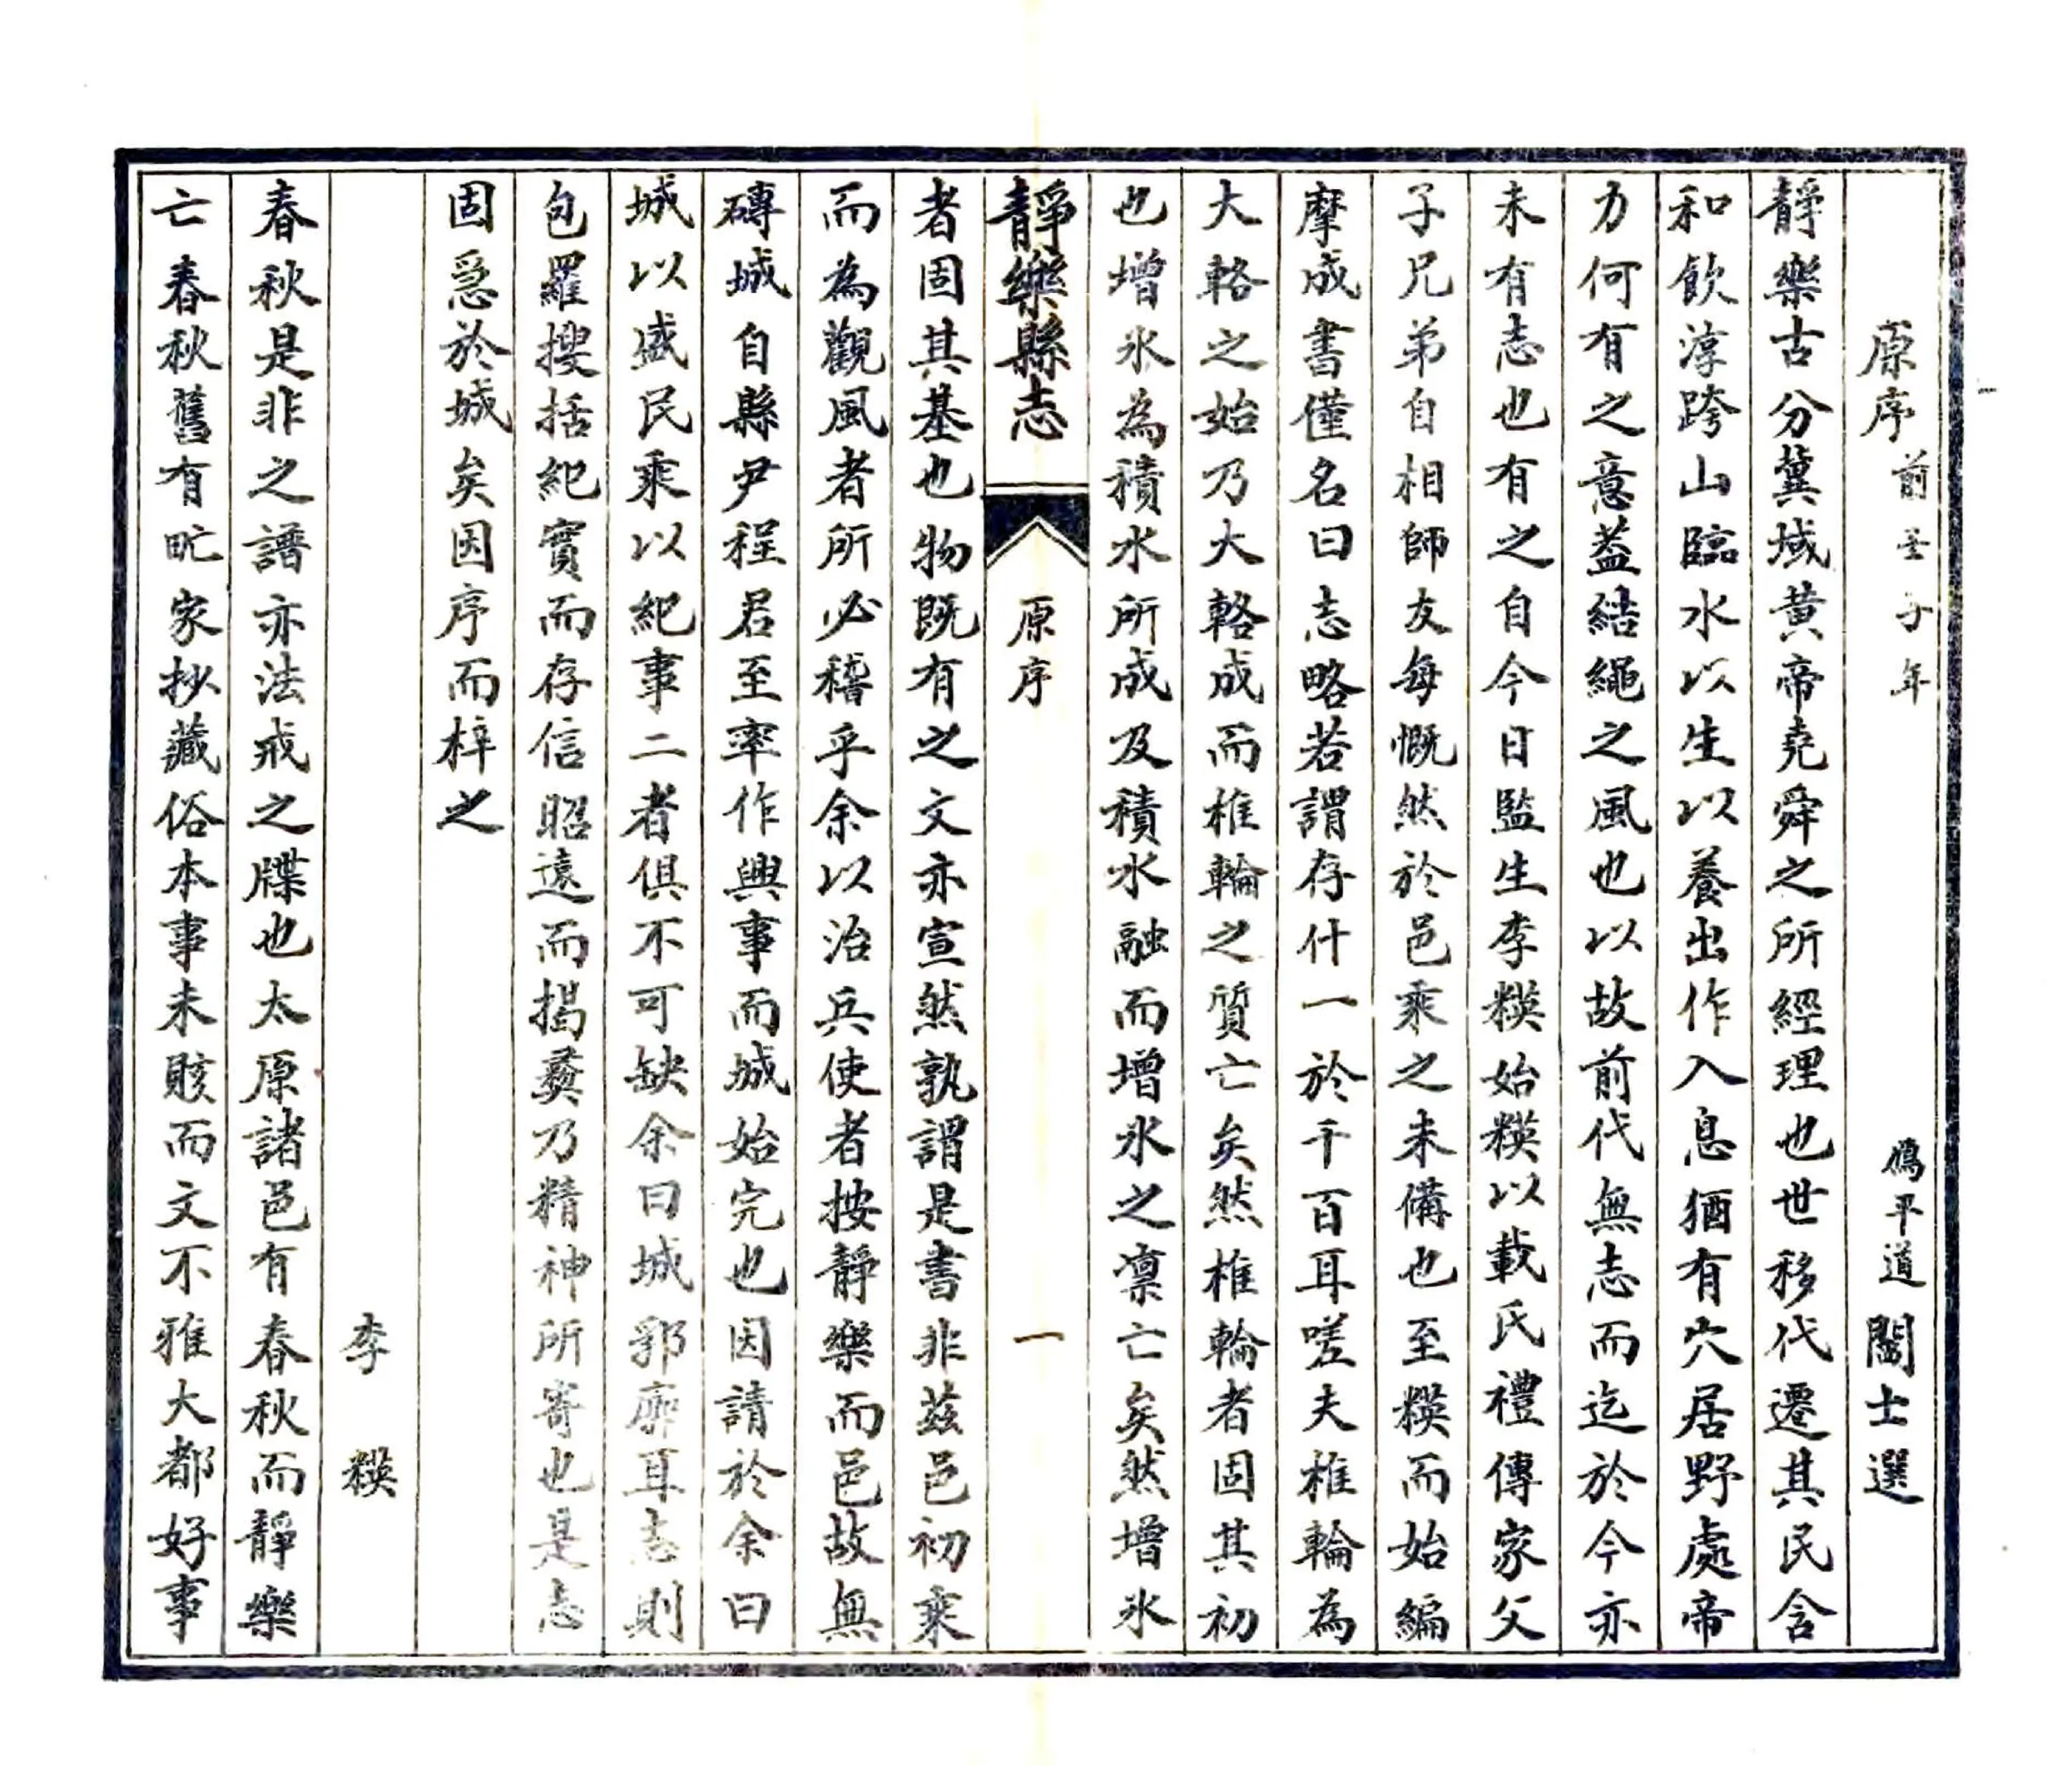 原序前壬子年 鴈平道閻士選
靜樂古分冀域黃帝堯舜之所經理也世移代遷其民含
和飲淳跨山臨水以生以養出作入息猶有穴居野處帝
力何有之意葢結繩之風也以故前代無志而迄於今亦
未有志也有之自今日監生李糢始糢以載氏禮傳家父
子兄弟自相師友每慨然於邑乘之未備也至糢而始編
摩成書僅名曰志略若謂存什一於千百耳嗟夫椎輪為
大輅之始乃大輅成而椎輪之質亡矣然椎輪者固其初
也增氷為積水所成及積水融而增氷之凛亡矣然增氷
靜樂縣志 原序 一
者固其基也物既有之文亦宣然孰謂是書非茲邑初乘
而為觀風者所必稽乎余以治兵使者按靜樂而邑故無
磚城自縣尹程君至率作興事而城始完也因請於余曰
城以盛民乘以紀事二者俱不可缺余曰城郛廓耳志則
包羅搜括紀實而存信昭遠而揭彝乃精神所寄也是志
固急於城矣因序而梓之
李糢
春秋是非之譜亦法戒之牒也太原諸邑有春秋而靜樂
亡春秋舊有甿家抄藏俗本事未賅而文不雅大都好事